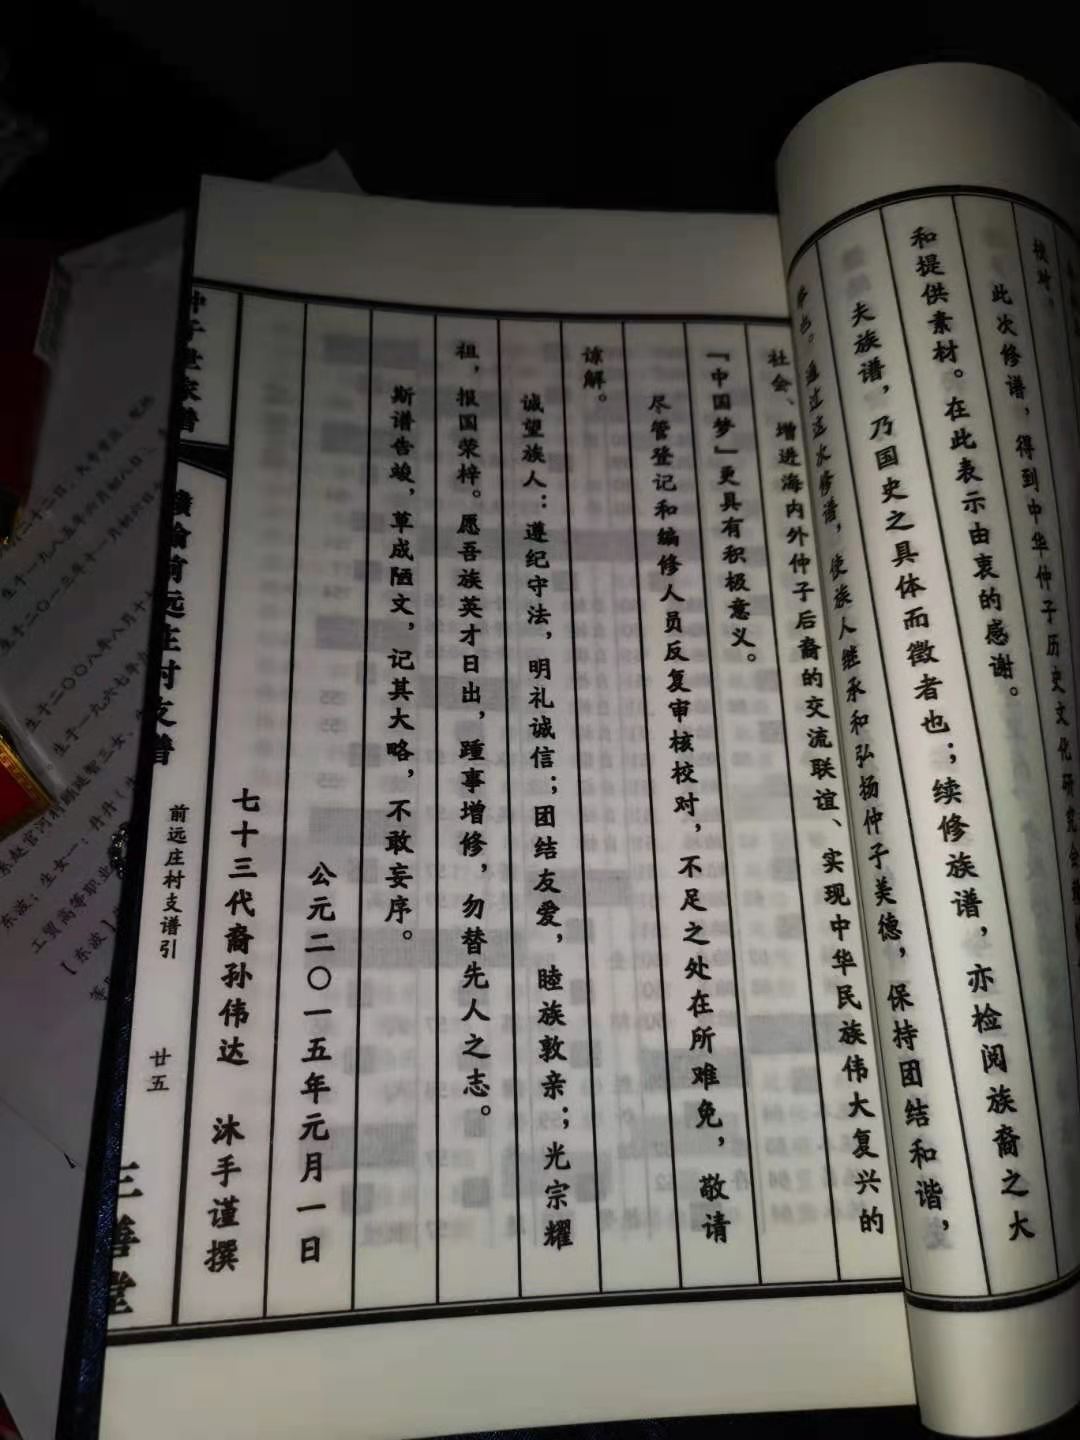 校对。
此次修谱，得到中华仲子历史文化研究会
和提供素材。在此表示由衷的感谢。
夫族谱，乃国史之具体而徵者也；续修族谱，亦检阅族裔之大
通过这次修谱，使族人继承和弘扬仲子美德，保持团结和谐，
社会、增进海内外仲子后裔的交流联谊、实现中华民族伟大复兴的
『中国梦』更具有积极意义。
尽管登记和编修人员反复审核校对，不足之处在所难免，敬请
谅解。
诚望族人：遵纪守法，明礼诚信；团结友爱，睦族敦亲；光宗耀
祖，报国荣梓。愿吾族英才日出，踵事增修，勿替先人之志。
斯谱告竣，草成陋文，记其大略，不敢妄序。
公元二〇一五年元月一日
七十三代裔孙伟达　沐手谨撰
仲子世家谱
前远庄村支谱
前远庄村支谱引
廿五
三善堂
生于一九八五年六月初八日
生于二〇一三年十一月初六日
生于二〇〇八年八月十
生于一九六七年
东波；生女一：丹丹
工贸高等职业
【东波】